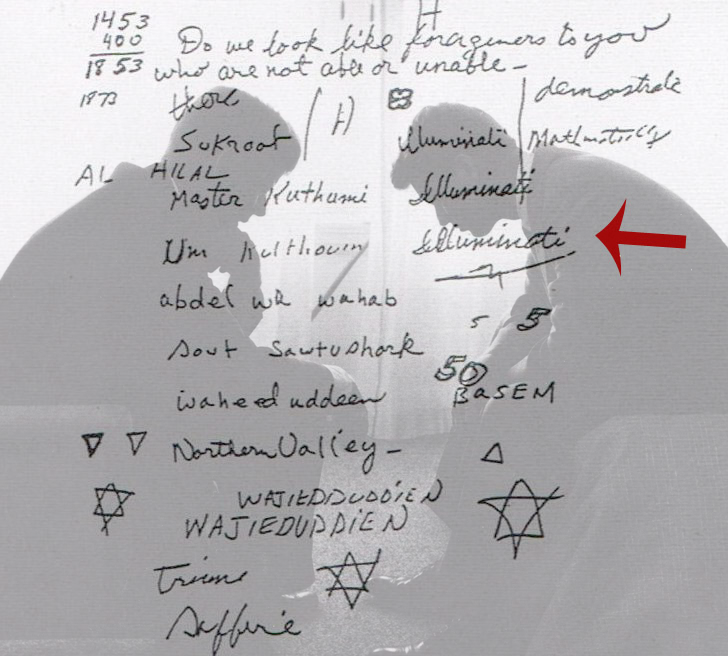 H
1453
400
1853
Do we look like forageners to you
who are not able or unable -
1873
there
demonstrate
Sukroof
H)
Illuminati
AL HILAL
Master Kuthumi
Illuminati
Um Kulthoum
Illuminati
abdel wa wahab
5 5
Sout Sawtushark
50
waheeduddeen
BASEM
Northern Valley -
WAJIEDDUDDIEN
WAJIEDUDDIEN